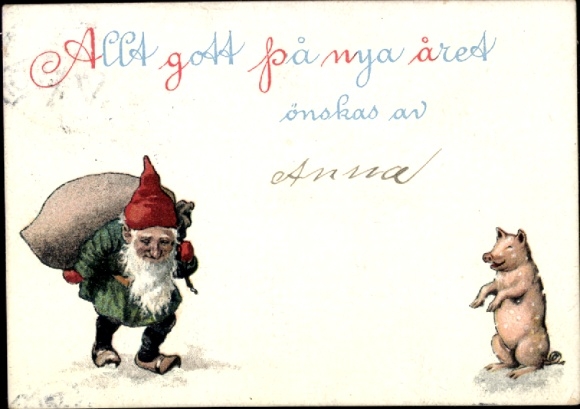 Allt gott på nya året
önskas av
Anna